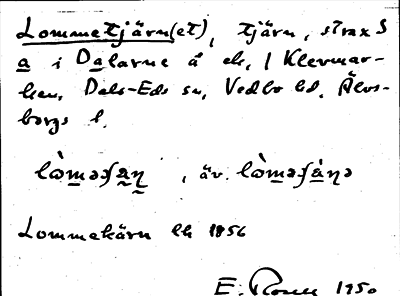 Lommetjärn(et), tjärn, strax S
a i Dalarne å ek, / Klevmar-
ken, Dals-Eds sn, Vedbo hd, Älvs-
borgs l.
lòməʃa̰ṇ, äv. lòməʃàṇə
Lommekärn lk 1856
E. 1950